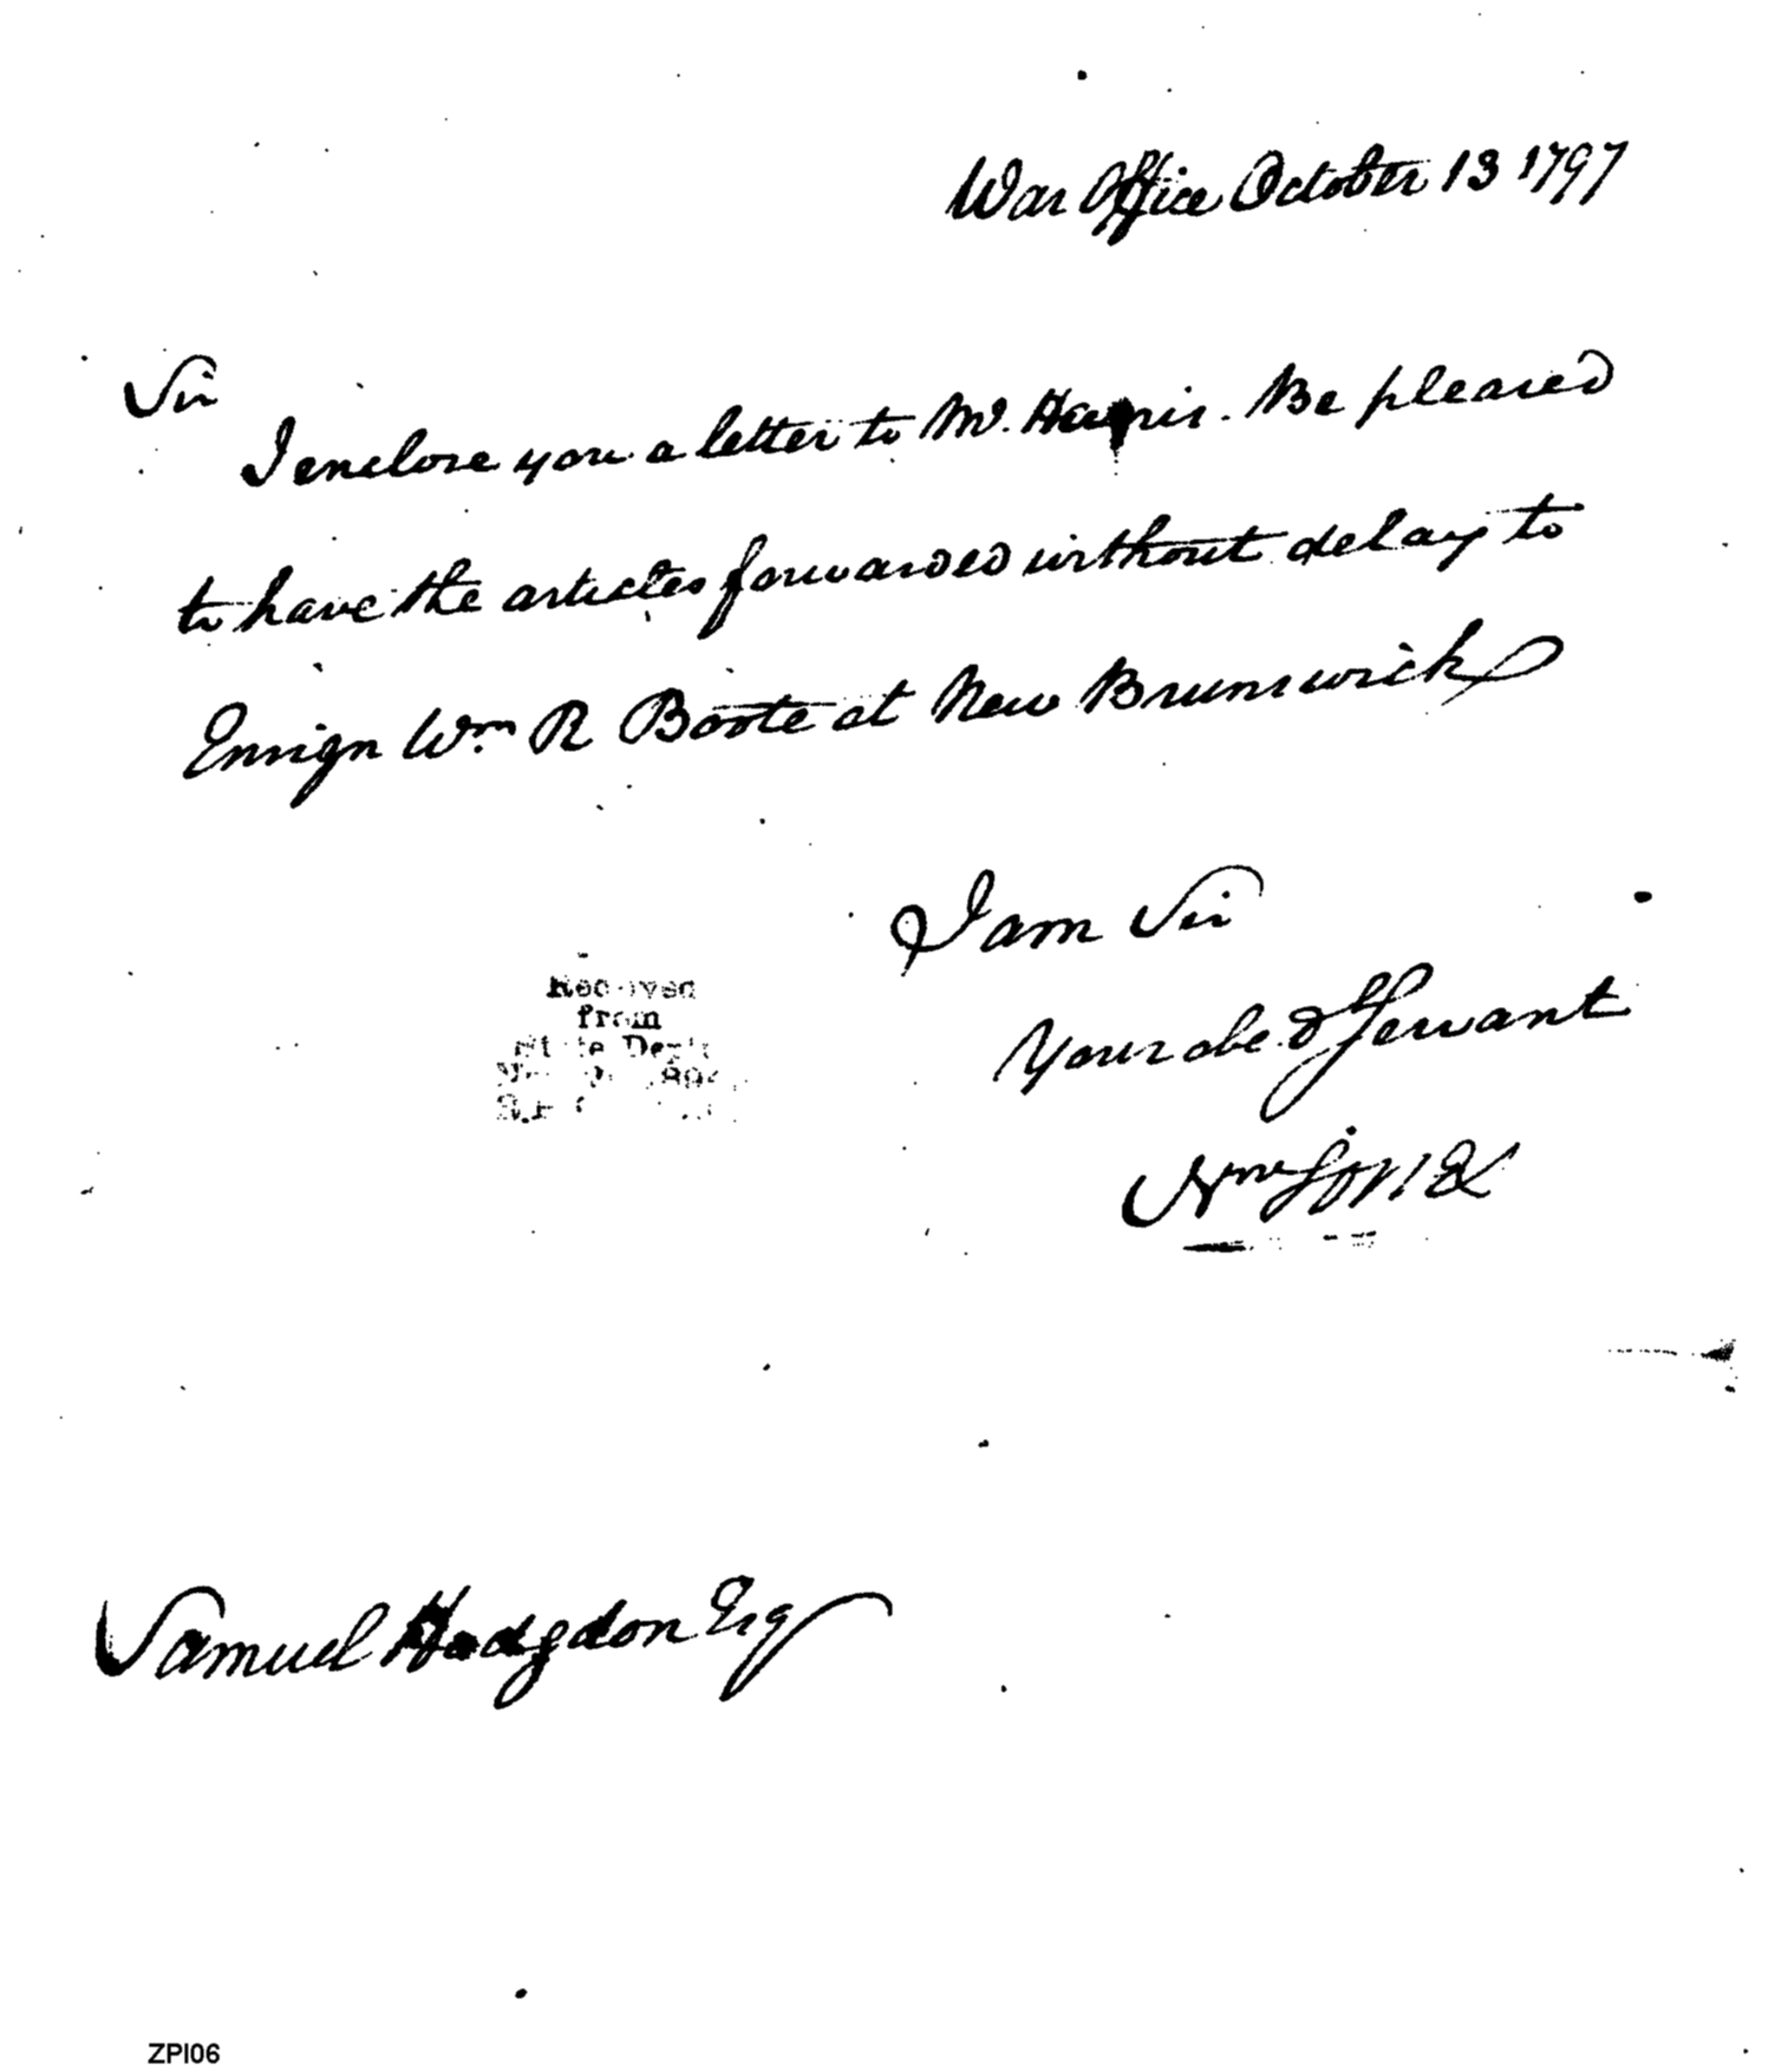 War Office October 13 1797
Sir
I enclose you a letter to Mr. Harris. Be pleased
to have the articles forwarded without delay to
Ensign Wm R Boote at New Brunswick
I am Sir
Your obed Servant
Received
from
Dept
Samuel Hodgdon Esq
ZPI06